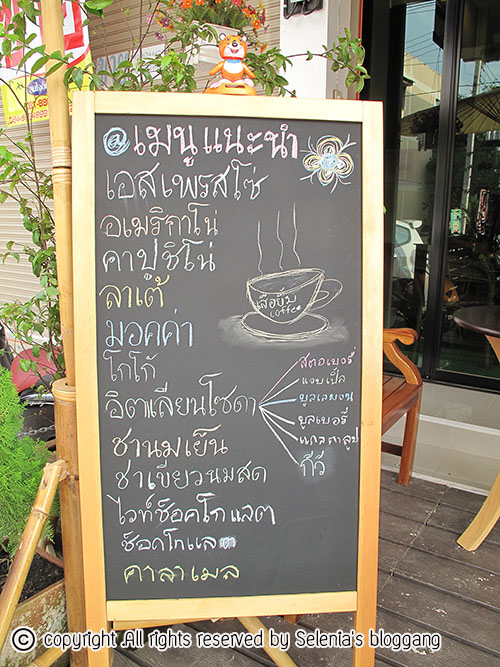 @เมนูแนะนำ
เอสเพรสโซ่
อเมริกาโน่
คาปูชิโน่
ลาเต้
มอคค่า
เสือยิ้ม
coffee
โกโก้
อิตาเลียนโซดา
สตอเบอรี่
แอบเปิ้ล
บูลเลมอน
บูลเบอรี่
แคลตาลูป
กีวี
ชานมเย็น
ชาเขียวนมสด
ไวท์ช็อคโกแลต
ช็อกโกแลต
คาลาเมล
© copyright All rights reserved by Selenia's bloggang